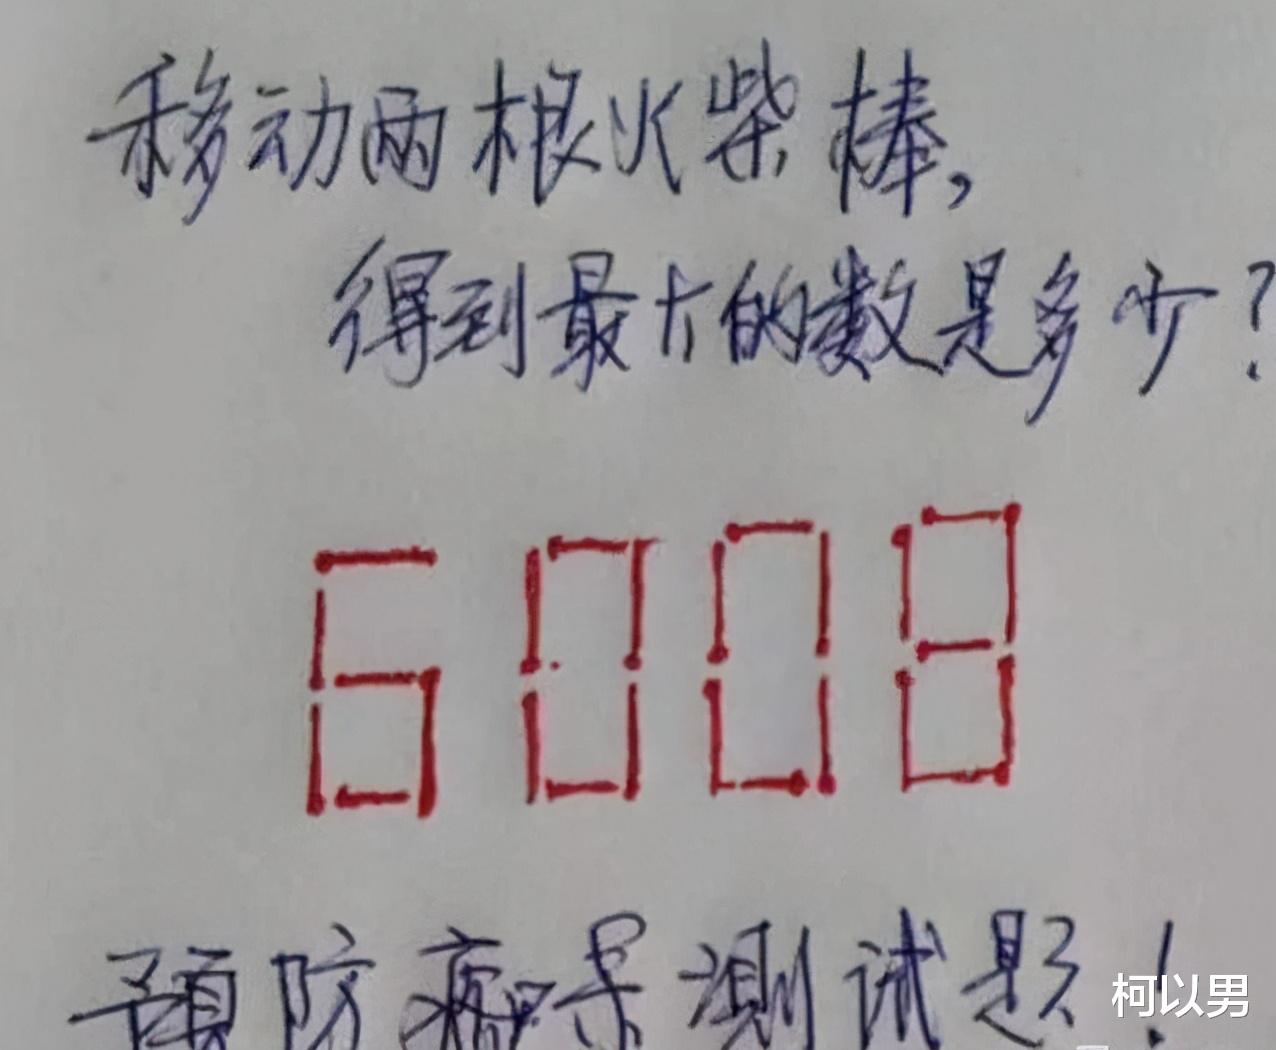 移动两根火柴棒,
得到最大的数是多少?
6008
预防痴呆测试题!
柯以男